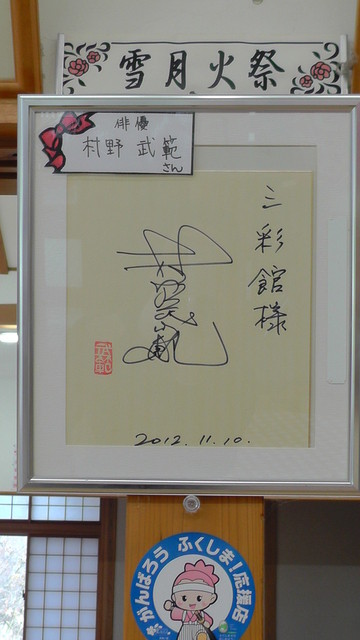 雪月火祭
俳優
村野 武範
さん
三彩館様
2012.11.10.
がんばろう ふくしま!応援店